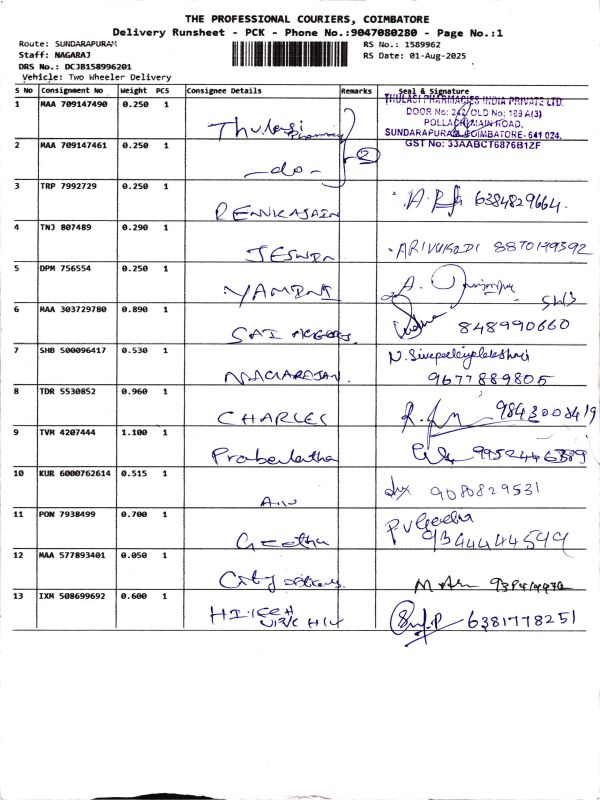 THE PROFESSIONAL COURIERS, COIMBATORE
Delivery Runsheet - PCK - Phone No.:9047080280 - Page No.:1
Route: SUNDARAPURAM
RS No.: 1589962
Staff: NAGARAJ
RS Date: 01-Aug-2025
DRS No.: DCJB158996201
Vehicle: Two Wheeler Delivery
S No Consignment No Weight PCS Consignee Details Remarks Seal & Signature
1 MAA 709147490 0.250 1
THULASI PHARMACIES INDIA PRIVATE LTD.
DOOR No: 242/OLD No: 189 A(3)
POLLACHI MAIN ROAD,
SUNDARAPURAM, COIMBATORE- 641 024.
GST No: 33AABCT6876B1ZF
Thulasi Pharmacy
2 MAA 709147461 0.250 1
-do- 2
3 TRP 7992729 0.250 1
6384829664.
4 TNJ 807489 0.290 1
JESWIN
5 DPM 756554 0.250 1
YAMINI
6 MAA 303729780 0.890 1
SAI 848990660
7 SHB 500096417 0.530 1
NAGARAJAN. 9677889805
8 TDR 5530852 0.960 1
CHARLES
9 TVM 4207444 1.100 1
10 KUR 6000762614 0.515 1
9080829531
11 PON 7938499 0.700 1
Geetha
12 MAA 577893401 0.050 1
City
13 IXM 508699692 0.600 1
6381778251